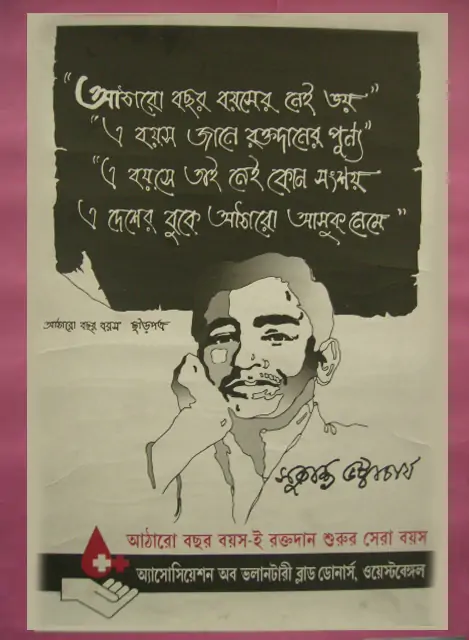 “আঠারো বছর বয়সের নেই ভয়”
“এ বয়স জানে রক্তদানের পুণ্য”
“এ বয়সে তাই নেই কোন সংশয়
এ দেশের বুকে আঠারো আসুক নেমে”
আঠারো বছর বয়স ছাড়পত্র
সুকান্ত ভট্টাচার্য
আঠারো বছর বয়স-ই রক্তদান শুরুর সেরা বয়স
অ্যাসোসিয়েশন অব ভলানটারী ব্লাড ডোনার্স, ওয়েস্টবেঙ্গল